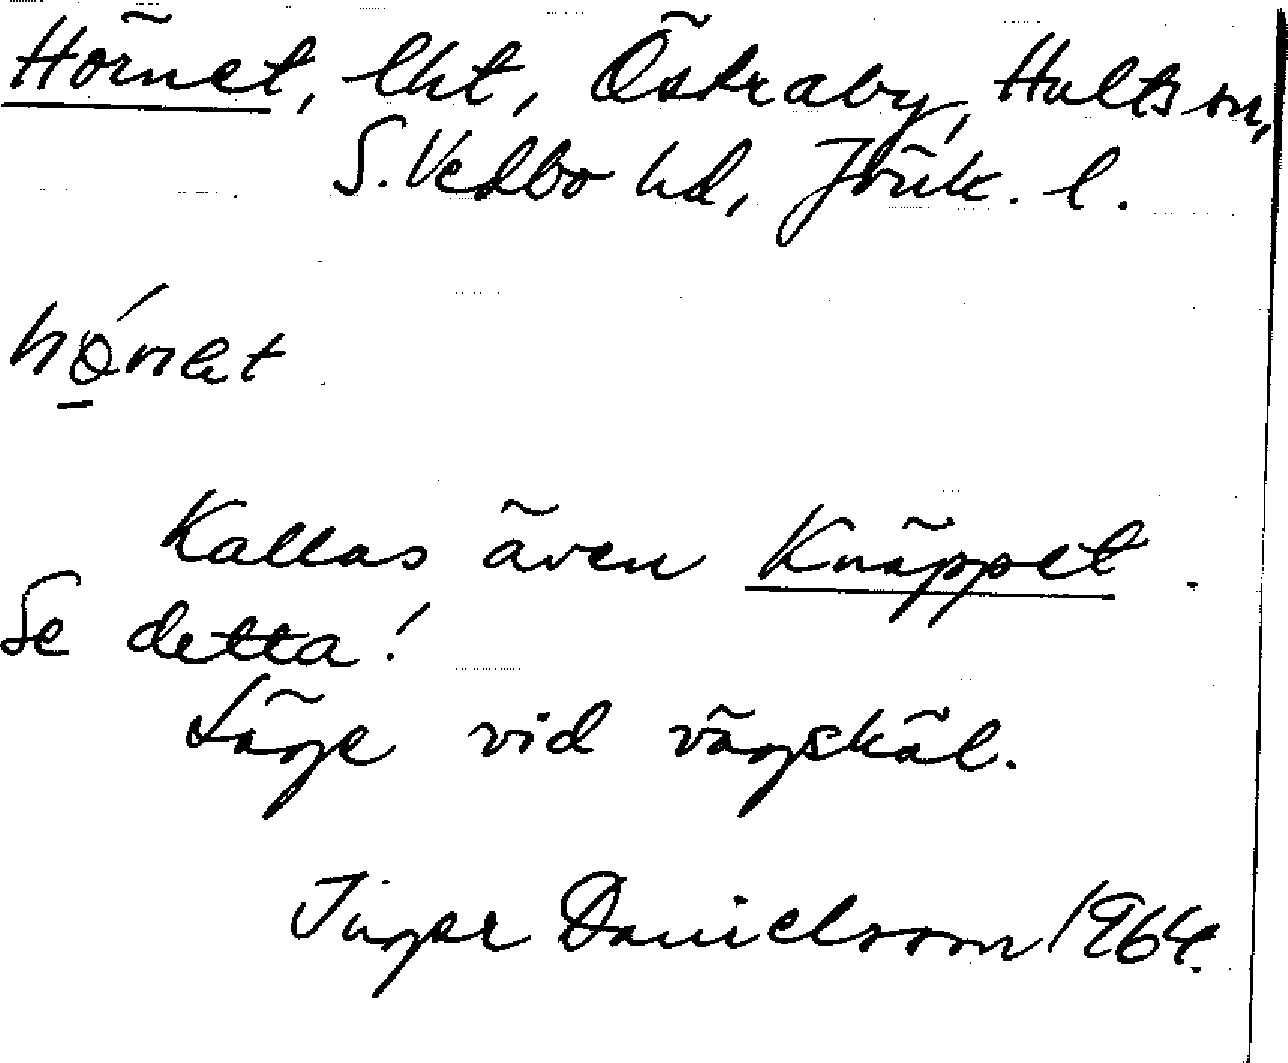 Hörnet, lht, Östraby, Hults sn,
S. Vedbo hd, Jönk. l.
hǿ̱net
Kallas även Knäppet.
Se detta!
Läge vid vägskäl.
Inger Danielsson 1964.